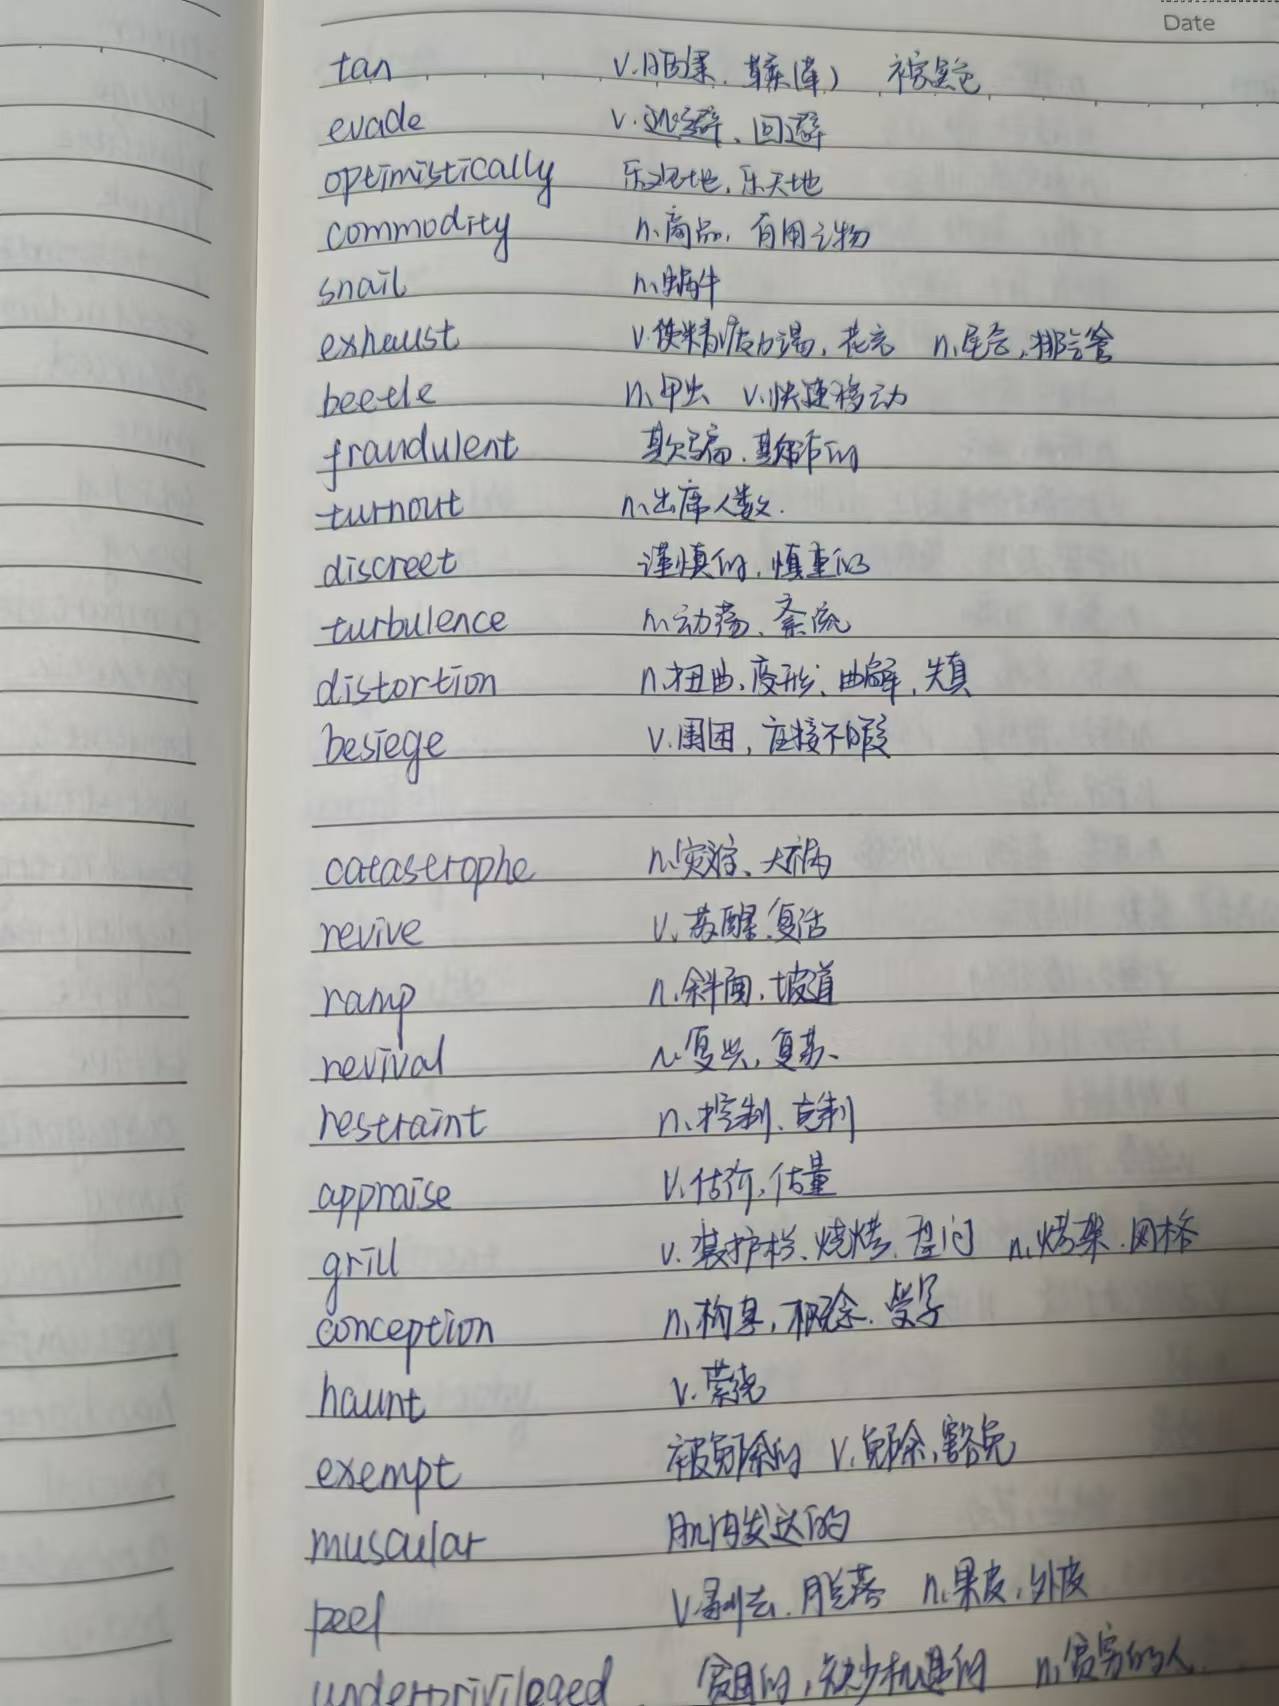 Date
tan v.晒黑、鞣(革) 棕黄色
evade v.逃避、回避
optimistically 乐观地,乐天地
commodity n.商品,有用之物
snail n.蜗牛
exhaust v.使精疲力竭,花光 n.尾气,排气管
beetle n.甲虫 v.快速移动
fraudulent 欺骗、欺诈的
turnout n.出席人数.
discreet 谨慎的,慎重的
turbulence n.动荡、紊流
distortion n.扭曲、变形、曲解,失真
besiege v.围困,应接不暇
catastrophe n.灾难、大祸
revive v.苏醒、复活
ramp n.斜面、坡道
revival n.复兴,复苏、
restraint n.控制、克制
appraise v.估价,估量
grill v.装护栏、烧烤、盘问 n.烤架、网格
conception n.构思,概念、受孕
haunt v.萦绕
exempt 被免除的 v.免除,豁免
muscular 肌肉发达的
peel v.剥去、脱落 n.果皮,外皮
underprivileged 贫困的,缺少机遇的 n.贫穷的人